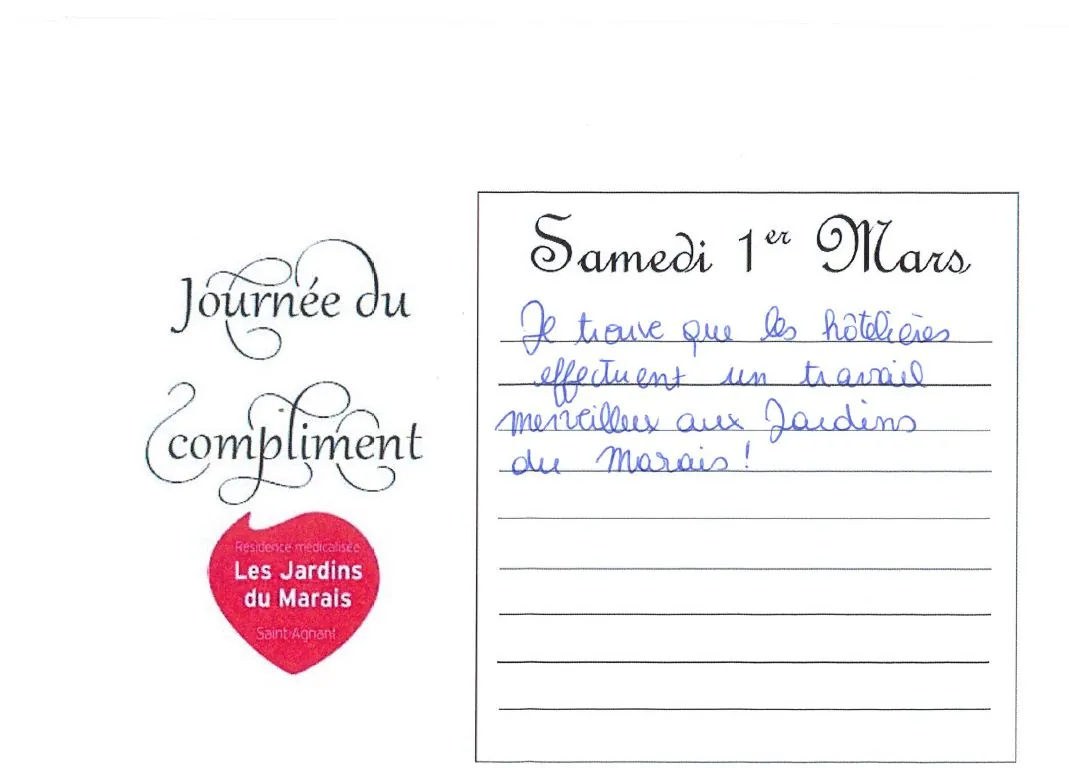 Journée du
compliment
Résidence médicalisée
Les Jardins
du Marais
Saint-Agnant
Samedi 1er Mars
Je trouve que les hôtelières
effectuent un travail
merveilleux aux Jardins
du Marais !